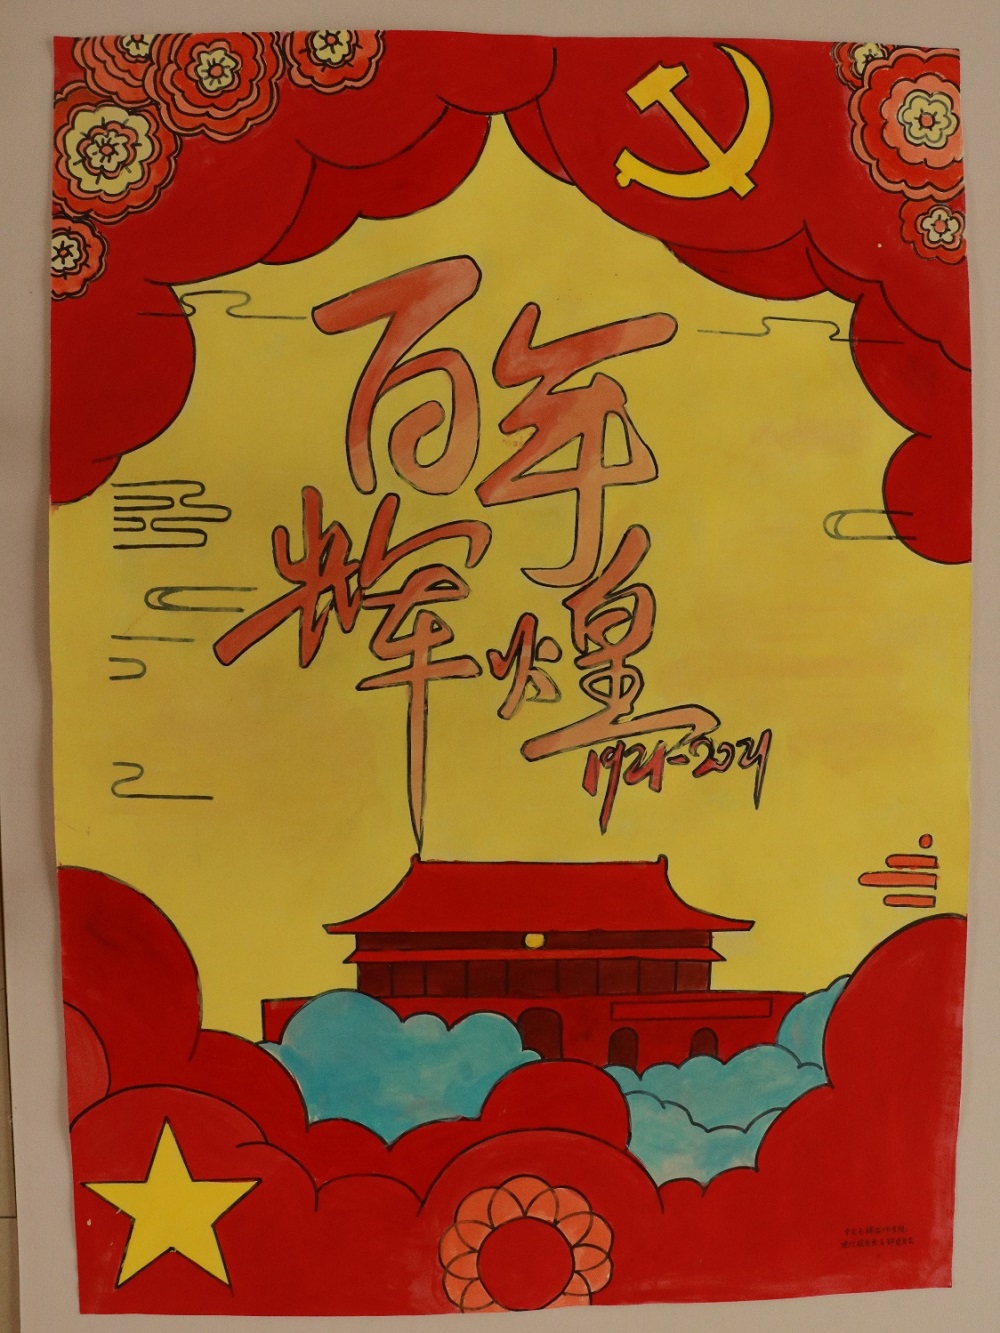 百年
辉煌
1921-2021